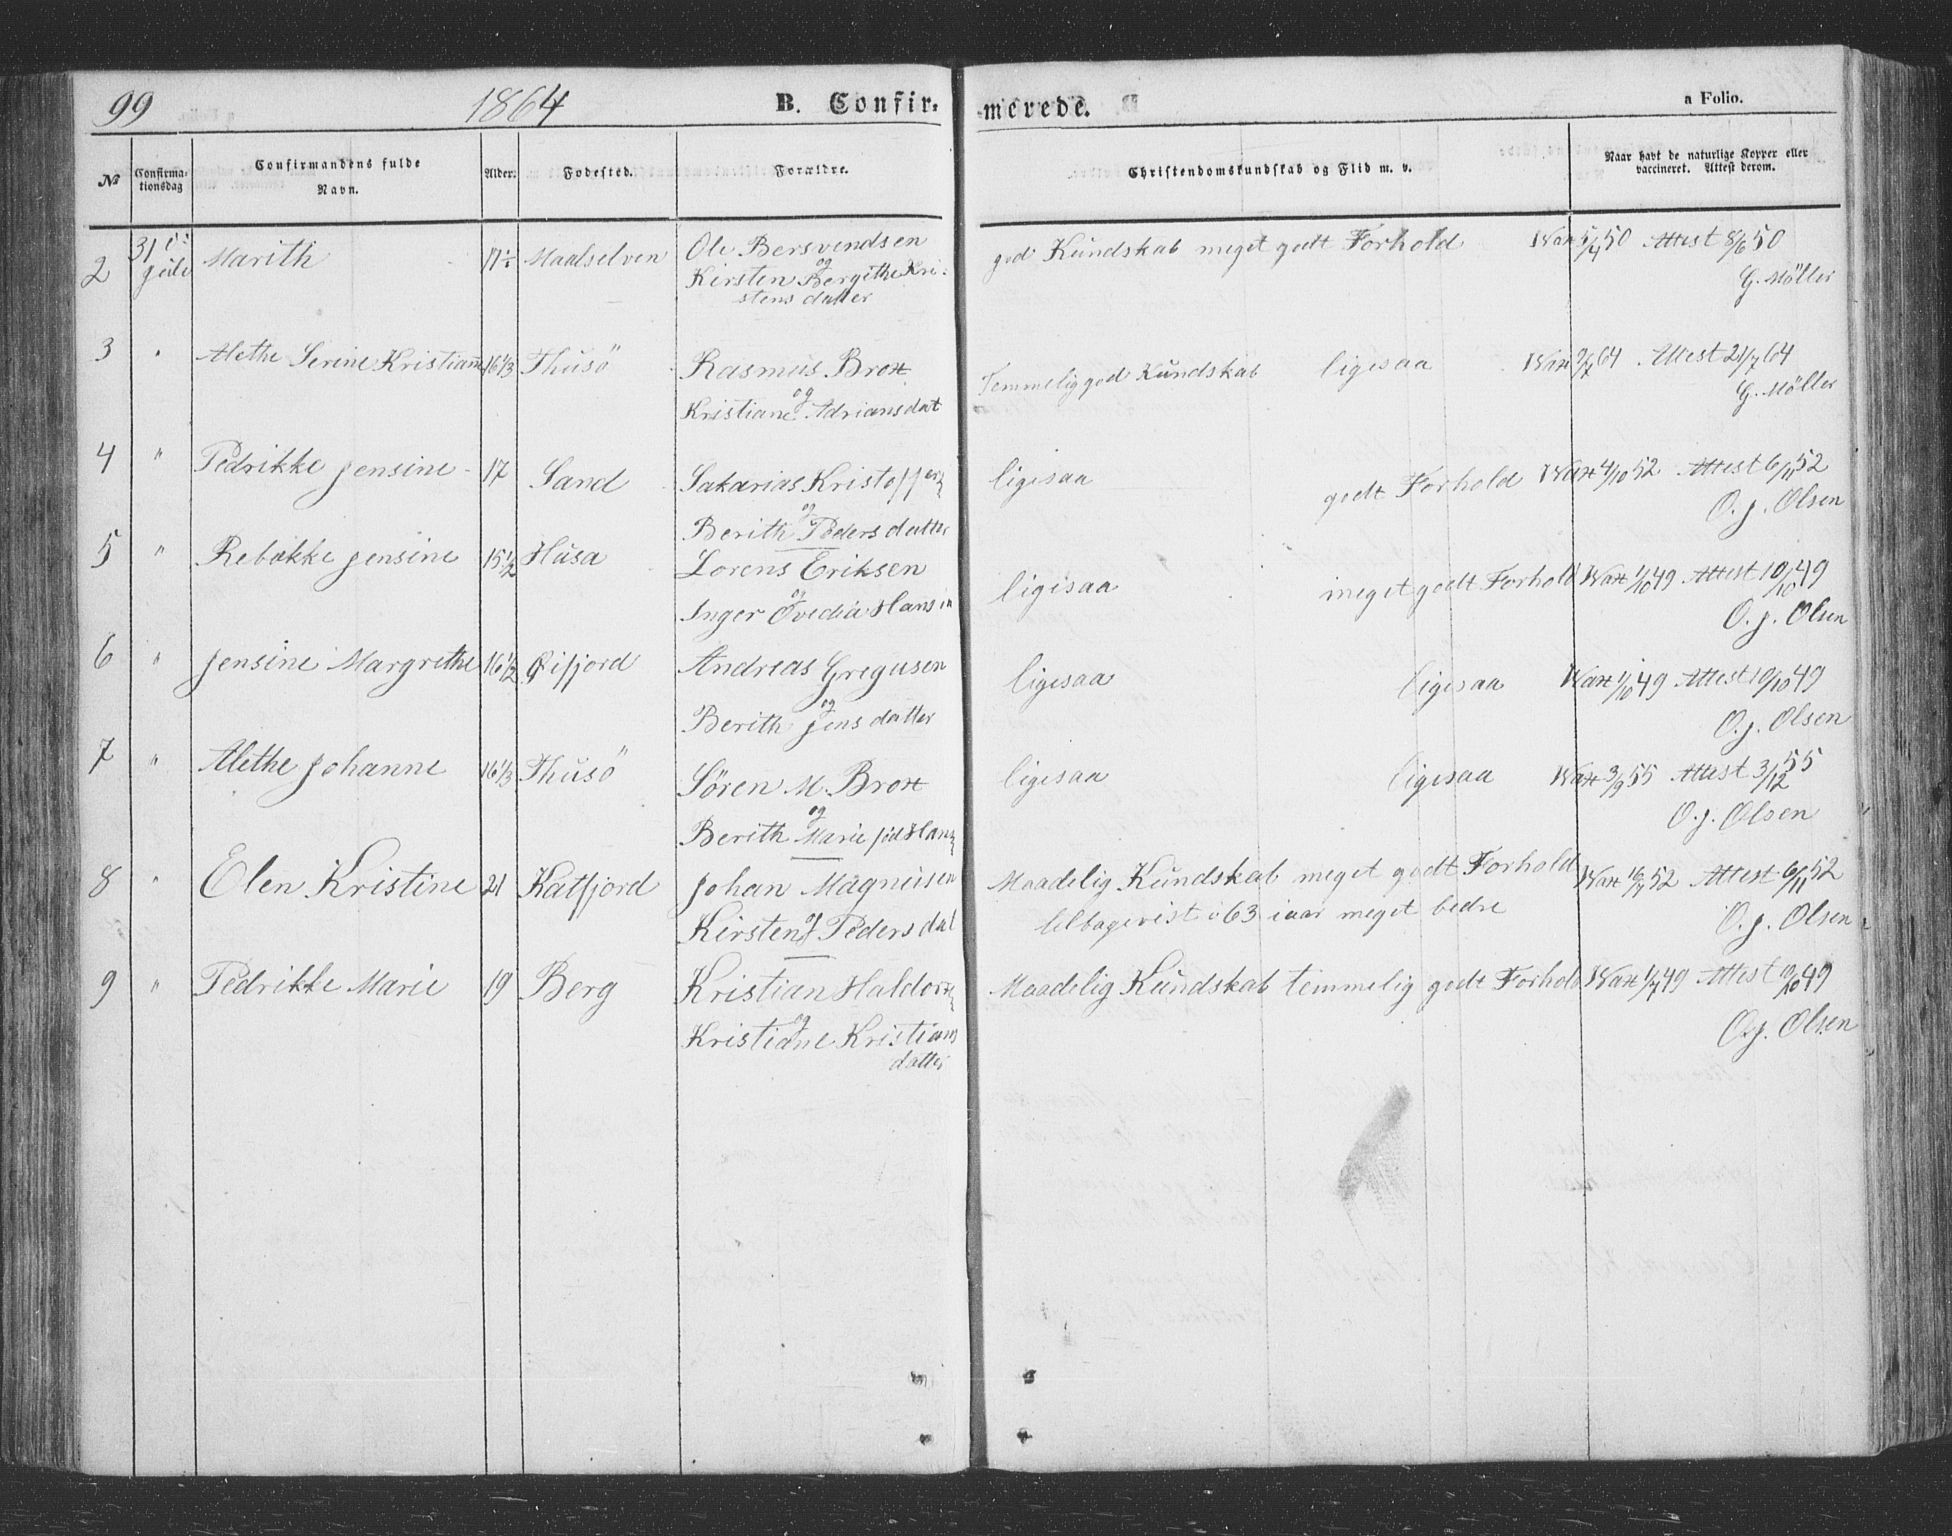 99 1864 B. Confir= =merede. a Folio.
№ Confirma-tionsdag Confirmandens fulde Navn. Alder. Fødested. Forældre. Christendomskundskab og Flid m. v. Naar havt de naturlige Kopper eller vaccineret. Attest derom.
2 31 Juli Marith Maalselven Ole Bersvendsen god Kundskab meget godt Forhold 50 Attest 8/6 50
og
Kirsten Bergithe Kri-
stensdatter G. Möller
3 " Alethe Serine Kristiane 16 1/3 Thusö Rasmus Brox Temmelig god Kundskab ligesaa Wax 9/7 64 Attest 21/7 64
og
Kristiane Adriansdat G. Möller
4 " Pedrikke Jensine 17 Sand Sakarias Kristoffer ligesaa godt Forhold Wax 4/10 52 Attest 6/11 52
og
Berith Pedersdatter O. J. Olsen
5 " Rebekke Jensine 15 1/2 Husa Lorens Eriksen ligesaa meget godt Forhold Wax 1/10 49 Attest 10/10 49
og
Inger Ovedia Hansin O. J. Olsen
6 " Jensine Margrethe 16 1/2 Øifjord Andreas Gregusen ligesaa ligesaa Wax 1/10 49 Attest 10/10 49
og
Berith Jensdatter O. J. Olsen
7 " Alethe Johanne 16 1/3 Thusö Sören M. Brox ligesaa ligesaa Wax 3/9 55 Attest 3/12 55
og
Berith Marie föd Han O. J. Olsen
8 " Elen Kristine 21 Katfjord Johan Magnusen Maadelig Kundskab meget godt Forhold Wax 52 Attest 6/11 52
Kirsten og Pedersdat tilbagevist i 63 iaar meget bedre O. J. Olsen
9 " Pedrikke Marie 19 Berg Kristian Haldor Maadelig Kundskab temmelig godt Forhold Wax 1/7 49 Attest 10/10 49
og
Kristiane Kristians
datter O. J. Olsen